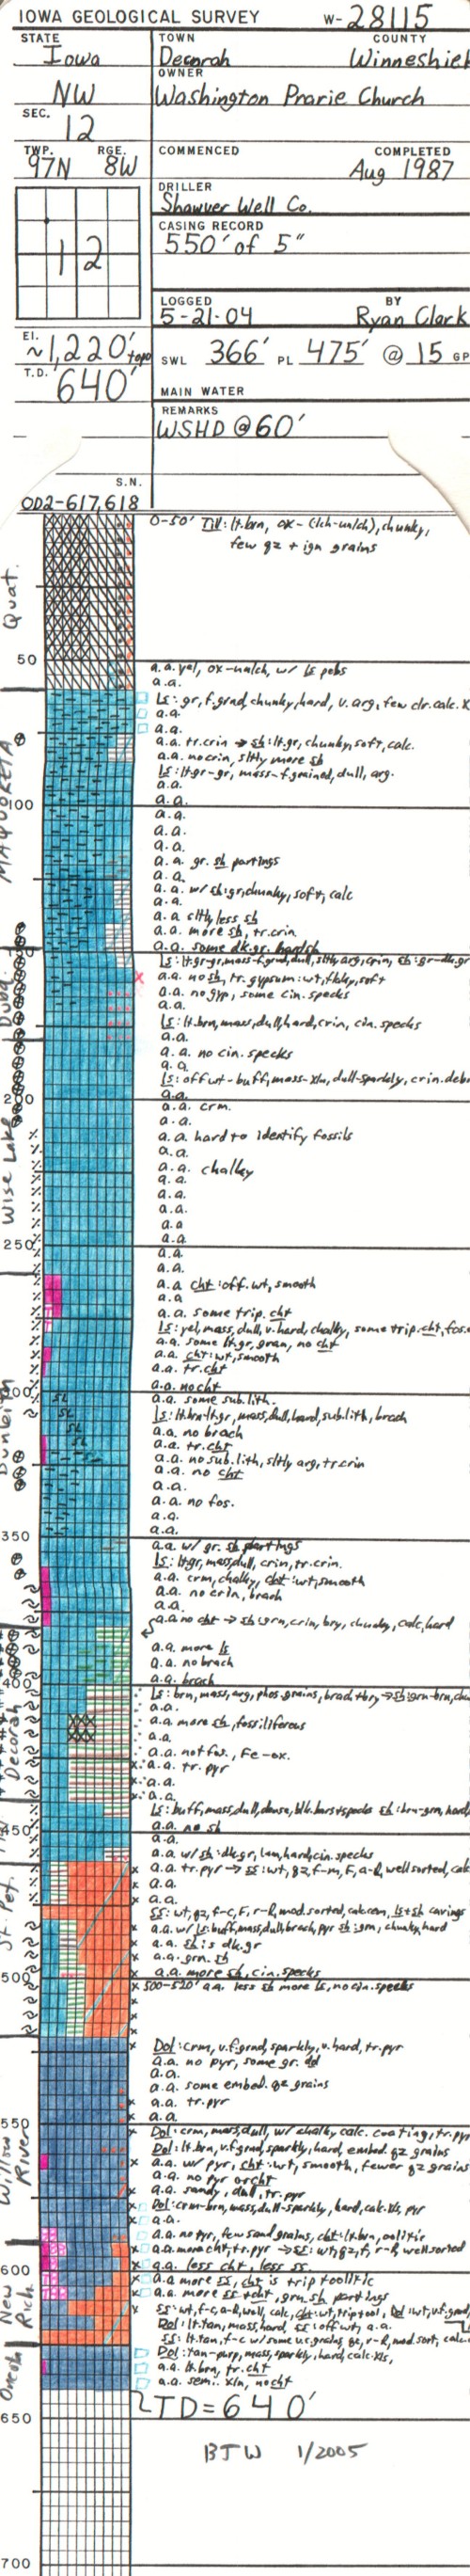 IOWA GEOLOGICAL SURVEY W-28115
STATE TOWN COUNTY
Iowa Decorah Winneshiek
OWNER
NW Washington Prarie Church
SEC.
12
TWP. RGE. COMMENCED COMPLETED
97N 8W Aug 1987
DRILLER
Shawver Well Co.
CASING RECORD
12 550' of 5"
LOGGED BY
5-21-04 Ryan Clark
El.
~1,220' topo SWL 366' PL 475' @ 15 GP
T.D.
640' MAIN WATER
REMARKS
WSHD @ 60'
S.N.
OD2-617,618
0-50' Till: lt.brn, ox-(lch-unlch), chunky,
few qz + ign grains
Quat.
50
a.a. yel, ox-unlch, w/ ls pebs
a.a.
ls: gr, f.grnd, chunky, hard, v. arg, few clr. calc. X
a.a.
a.a.
a.a. tr.crin → sh: lt.gr, chunky, soft, calc.
a.a. no crin, sltly more sh
ls: lt.gr-gr, mass-f.grained, dull, arg.
MAQUOKETA
a.a.
a.a.
100
a.a.
a.a.
a.a.
a.a. gr. sh partings
a.a.
a.a. w/ sh: gr, chunky, soft, calc
a.a.
a.a sltly less sh
a.a. more sh, tr.crin
a.a. some dk.gr. hard sh
ls: lt.gr-gr, mass-f.grnd, dull, sltly arg, crin, sh: gr-dk.gr
Dubq.
a.a. no sh, tr. gypsum: wt, flaky, soft
a.a. no gyp, some cin. specks
ls: lt.brn, mass, dull, hard, crin, cin. specks
a.a.
a.a. no cin. specks
a.a.
ls: off wt-buff, mass-xln, dull-sparkly, crin. debr
200
a.a.
a.a. crm.
a.a.
a.a. hard to identify fossils
Wise Lake
a.a.
a.a. chalky
a.a.
a.a.
a.a.
a.a
a.a.
250
a.a.
a.a.
a.a cht: off. wt, smooth
a.a
a.a. some trip. cht
ls: yel, mass, dull, v.hard, chalky, some trip. cht, fos.
a.a. some lt.gr, gran, no cht
a.a. cht: wt, smooth
a.a. tr.cht
a.a. no cht
a.a. some sub.lith.
SL
SL
SL
SL
ls: lt.brn-lt.gr, mass, dull, hard, sub.lith, brach
Dunleith
a.a. no brach
a.a. tr.cht
a.a. no sub.lith, sltly arg, tr.crin
a.a. no cht
a.a.
a.a. no fos.
a.a.
a.a.
350
a.a. w/ gr. sh partings
ls: lt.gr, mass, dull, crin, tr.crin.
a.a. crm, chalky, cht: wt, smooth
a.a. no crin, brach
a.a.
a.a no cht → sh: grn, crin, bry, chunky, calc, hard
a.a. more ls
a.a. no brach
400
a.a. brach
ls: brn, mass, arg, phos. grains, brach+bry → sh: grn-brn, chu
Decorah
a.a.
a.a more sh, fossiliferous
a.a.
a.a. not fos., Fe-ox.
a.a. tr. pyr
a.a.
a.a.
ls: buff, mass, dull, dense, blk. bars+specks sh: brn-grn, hard,
450
a.a. no sh
a.a.
a.a. w/ sh: dk.gr, lam, hard, cin. specks
a.a. tr.pyr → ss: wt, qz, f-m, F, a-R, well sorted, calc
a.a.
a.a.
St. Pet.
ss: wt, qz, f-c, F, r-R, mod. sorted, calc cem, ls+sh cavings
a.a. w/ ls: buff, mass, dull, brach, pyr sh: grn, chunky, hard
a.a. sh is dk.gr
a.a. grn. sh
500
a.a. more sh, cin. specks
500-520' a.a. less sh more ls, no cin. specks
Dol: crm, v.f.grnd, sparkly, v. hard, tr.pyr
a.a. no pyr, some gr. dol
a.a.
a.a. some embed. qz grains
a.a. tr.pyr
550
a.a.
Dol: crm, mass, dull, w/ chalky calc. coating, tr.pyr
Dol: lt.brn, v.f.grnd, sparkly, hard, embed. qz grains
Willow
River
a.a. w/ pyr, cht: wt, smooth, fewer qz grains
a.a. no pyr or cht
a.a. sandy, dull, tr.pyr
Dol: crm-brn, mass, dull-sparkly, hard, calc. xls, pyr
a.a.
a.a. no pyr, few sand grains, cht: lt.brn, oolitic
a.a. more cht, tr.pyr → ss: wt, qz, f, r-R, well sorted
600
a.a. less cht, less ss.
a.a more ss, cht is trip+oolitic
New
Rich.
a.a. more ss+cht, grn. sh partings
ss: wt, f-c, a-R, well, calc, cht: wt, trip+ool, Dol: wt, v.f.grnd,
Dol: lt.tan, mass, hard, ss: off wt, a.a.
ss: lt.tan, f-c w/ some v.c. grains, qz, r-R, mod. sort, calc.
Dol: tan-purp, mass, sparkly, hard, calc. xls,
Oneota
a.a. lt.brn, tr.cht
a.a. semi. xln, no cht
TD = 640'
650
BJW 1/2005
700